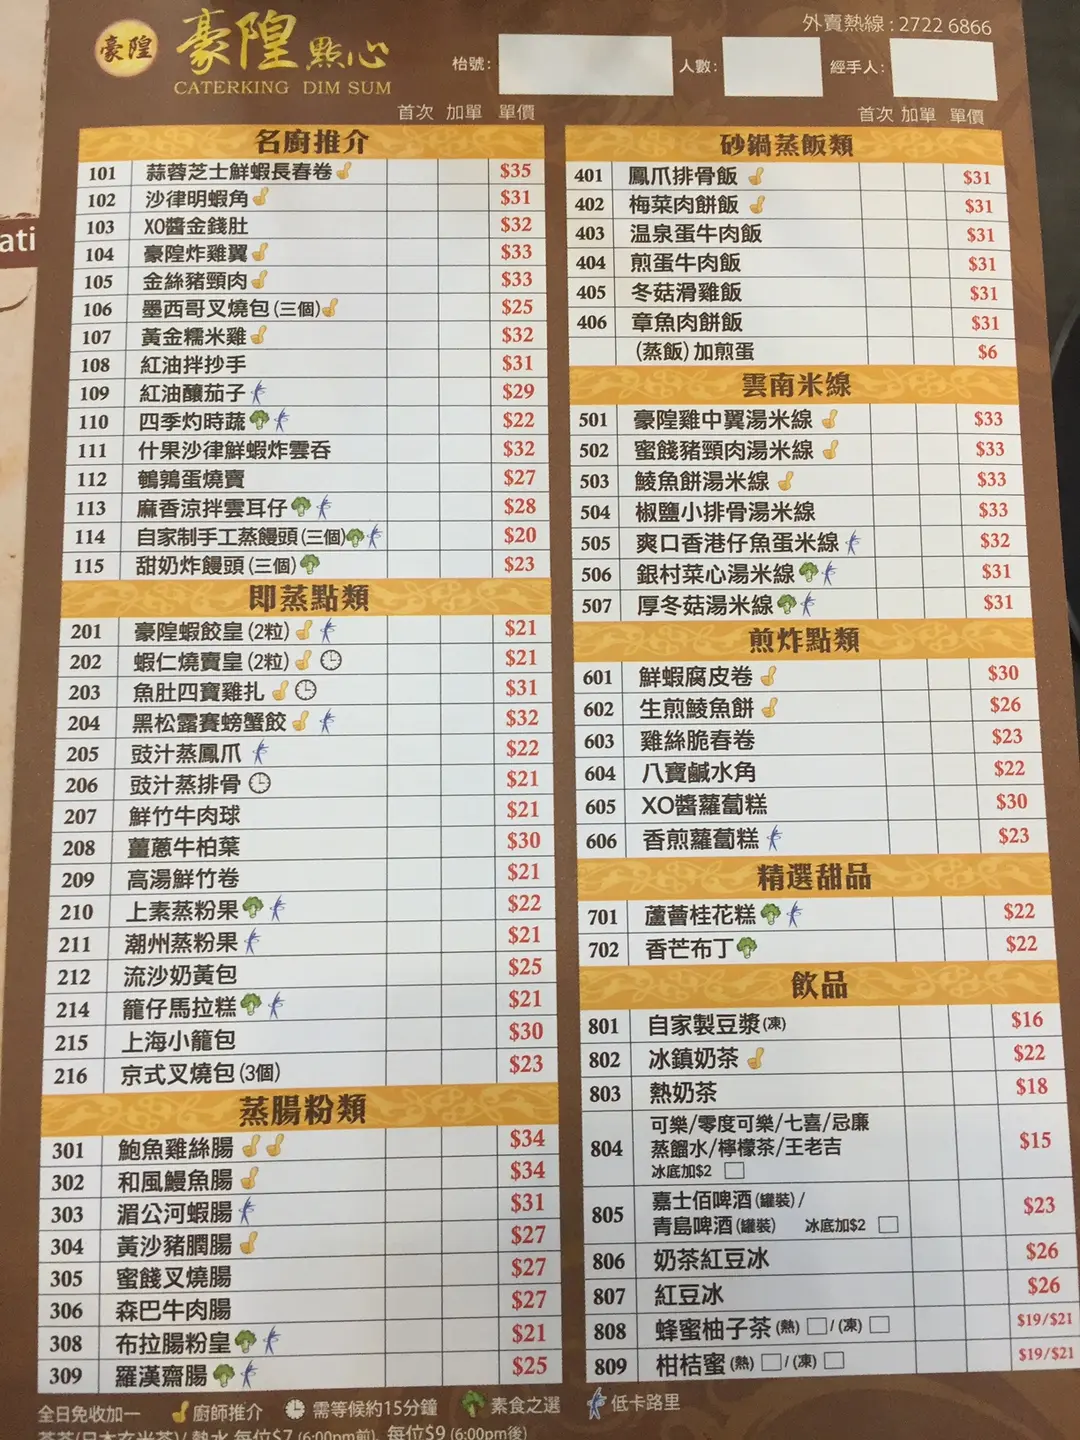 ati
豪隍
豪隍點心
CATERKING DIM SUM
外賣熱線 : 2722 6866
枱號:
人數:
經手人:
首次 加單 單價
名廚推介
101 蒜蓉芝士鮮蝦長春卷 $35
102 沙律明蝦角 $31
103 XO醬金錢肚 $32
104 豪隍炸雞翼 $33
105 金絲豬頸肉 $33
106 墨西哥叉燒包 (三個) $25
107 黃金糯米雞 $32
108 紅油拌抄手 $31
109 紅油釀茄子 $29
110 四季灼時蔬 $22
111 什果沙律鮮蝦炸雲吞 $32
112 鵪鶉蛋燒賣 $27
113 麻香涼拌雲耳仔 $28
114 自家制手工蒸饅頭 (三個) $20
115 甜奶炸饅頭 (三個) $23
即蒸點類
201 豪隍蝦餃皇 (2粒) $21
202 蝦仁燒賣皇 (2粒) $21
203 魚肚四寶雞扎 $31
204 黑松露賽螃蟹餃 $32
205 豉汁蒸鳳爪 $22
206 豉汁蒸排骨 $21
207 鮮竹牛肉球 $21
208 薑蔥牛柏葉 $30
209 高湯鮮竹卷 $21
210 上素蒸粉果 $22
211 潮州蒸粉果 $21
212 流沙奶黃包 $25
214 籠仔馬拉糕 $21
215 上海小籠包 $30
216 京式叉燒包 (3個) $23
蒸腸粉類
301 鮑魚雞絲腸 $34
302 和風鰻魚腸 $34
303 湄公河蝦腸 $31
304 黃沙豬膶腸 $27
305 蜜餞叉燒腸 $27
306 森巴牛肉腸 $27
308 布拉腸粉皇 $21
309 羅漢齋腸 $25
首次 加單 單價
砂鍋蒸飯類
401 鳳爪排骨飯 $31
402 梅菜肉餅飯 $31
403 温泉蛋牛肉飯 $31
404 煎蛋牛肉飯 $31
405 冬菇滑雞飯 $31
406 章魚肉餅飯 $31
(蒸飯) 加煎蛋 $6
雲南米線
501 豪隍雞中翼湯米線 $33
502 蜜餞豬頸肉湯米線 $33
503 鯪魚餅湯米線 $33
504 椒鹽小排骨湯米線 $33
505 爽口香港仔魚蛋米線 $32
506 銀村菜心湯米線 $31
507 厚冬菇湯米線 $31
煎炸點類
601 鮮蝦腐皮卷 $30
602 生煎鯪魚餅 $26
603 雞絲脆春卷 $23
604 八寶鹹水角 $22
605 XO醬蘿蔔糕 $30
606 香煎蘿蔔糕 $23
精選甜品
701 蘆薈桂花糕 $22
702 香芒布丁 $22
飲品
801 自家製豆漿 (凍) $16
802 冰鎮奶茶 $22
803 熱奶茶 $18
804 可樂/零度可樂/七喜/忌廉
蒸餾水/檸檬茶/王老吉 $15
冰底加$2
805 嘉士佰啤酒 (罐裝) /
青島啤酒 (罐裝) 冰底加$2 $23
806 奶茶紅豆冰 $26
807 紅豆冰 $26
808 蜂蜜柚子茶 (熱) / (凍) $19/$21
809 柑桔蜜 (熱) / (凍) $19/$21
全日免收加一 廚師推介 需等候約15分鐘 素食之選 低卡路里
茶芥(日本玄米茶)/ 熱水 每位$7 (6:00pm前), 每位$9 (6:00pm後)